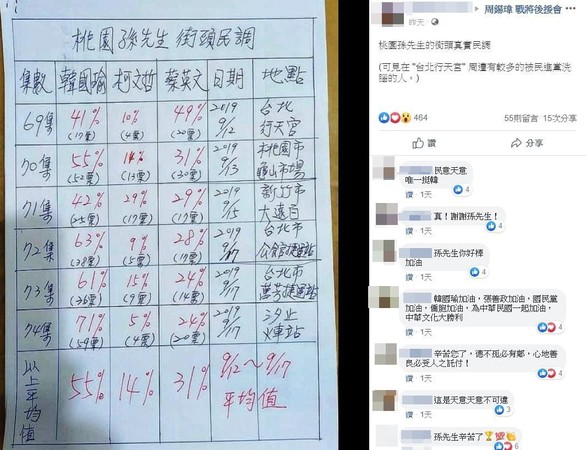 桃園孫先生 街頭民調
集數 韓國瑜 柯文哲 蔡英文 日期 地點
69集 41% (17票) 10% (4票) 49% (20票) 2019 9/12 台北 行天宮
70集 55% (52票) 14% (13票) 31% (30票) 2019 9/13 桃園市 龜山市場
71集 42% (25票) 29% (17票) 29% (17票) 2019 9/15 新竹市 大遠百
72集 63% (38票) 9% (5票) 28% (17票) 2019 9/17 台北市 公館捷運站
73集 61% (36票) 15% (9票) 24% (14票) 2019 9/17 台北市 萬芳捷運站
74集 71% (59票) 5% (4票) 24% (20票) 2019 9/17 汐止 火車站
以上平均值 55% 14% 31% 9/12~9/17 平均值
周錫瑋 戰將後援會
昨天
桃園孫先生的街頭真實民調
(可見在 "台北行天宮" 周遭有較多的被民進黨洗
腦的人。)
464
55則留言 15次分享
讚
分享
民意天意
唯一挺韓
4
讚 · 1天
真！謝謝孫先生！
讚 · 1天
6
孫先生你好棒
加油
4
讚 · 1天
韓國瑜加油，張善政加油，國民黨
加油，僑胞加油，為中華民國一起加油，
中華文化大勝利
4
讚 · 1天
辛苦您了，德不孤必有鄰，心地善
良必受人之託付！
6
讚 · 1天
這是天意天意不可違
讚 · 1天
3
孫先生辛苦了🏆💯👏
讚 · 1天
4